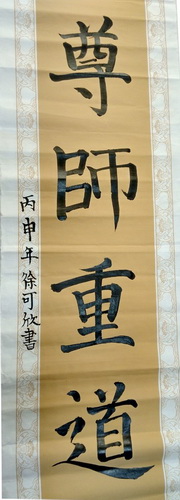 尊師重道
丙申年徐可欣書